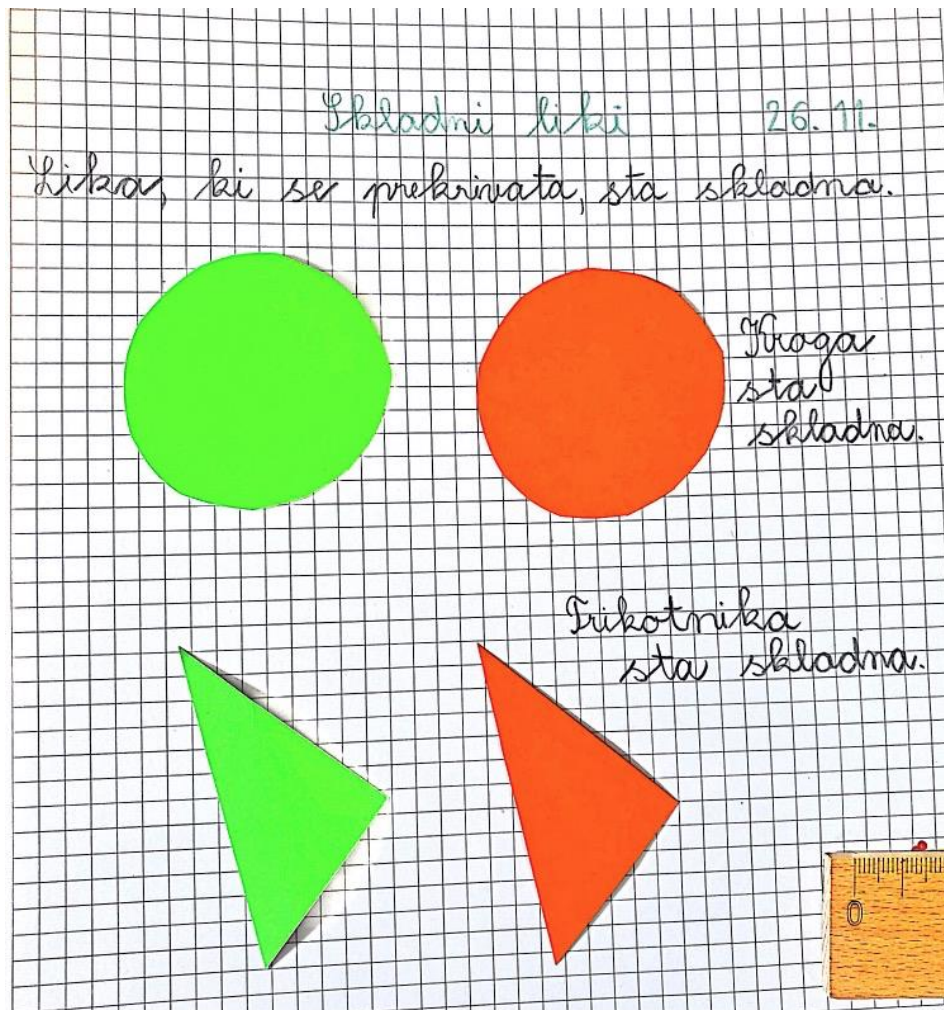 Skladni liki 26. 11.
Lika, ki se prekrivata, sta skladna.
Kroga
sta
skladna.
Trikotnika
sta skladna.
0